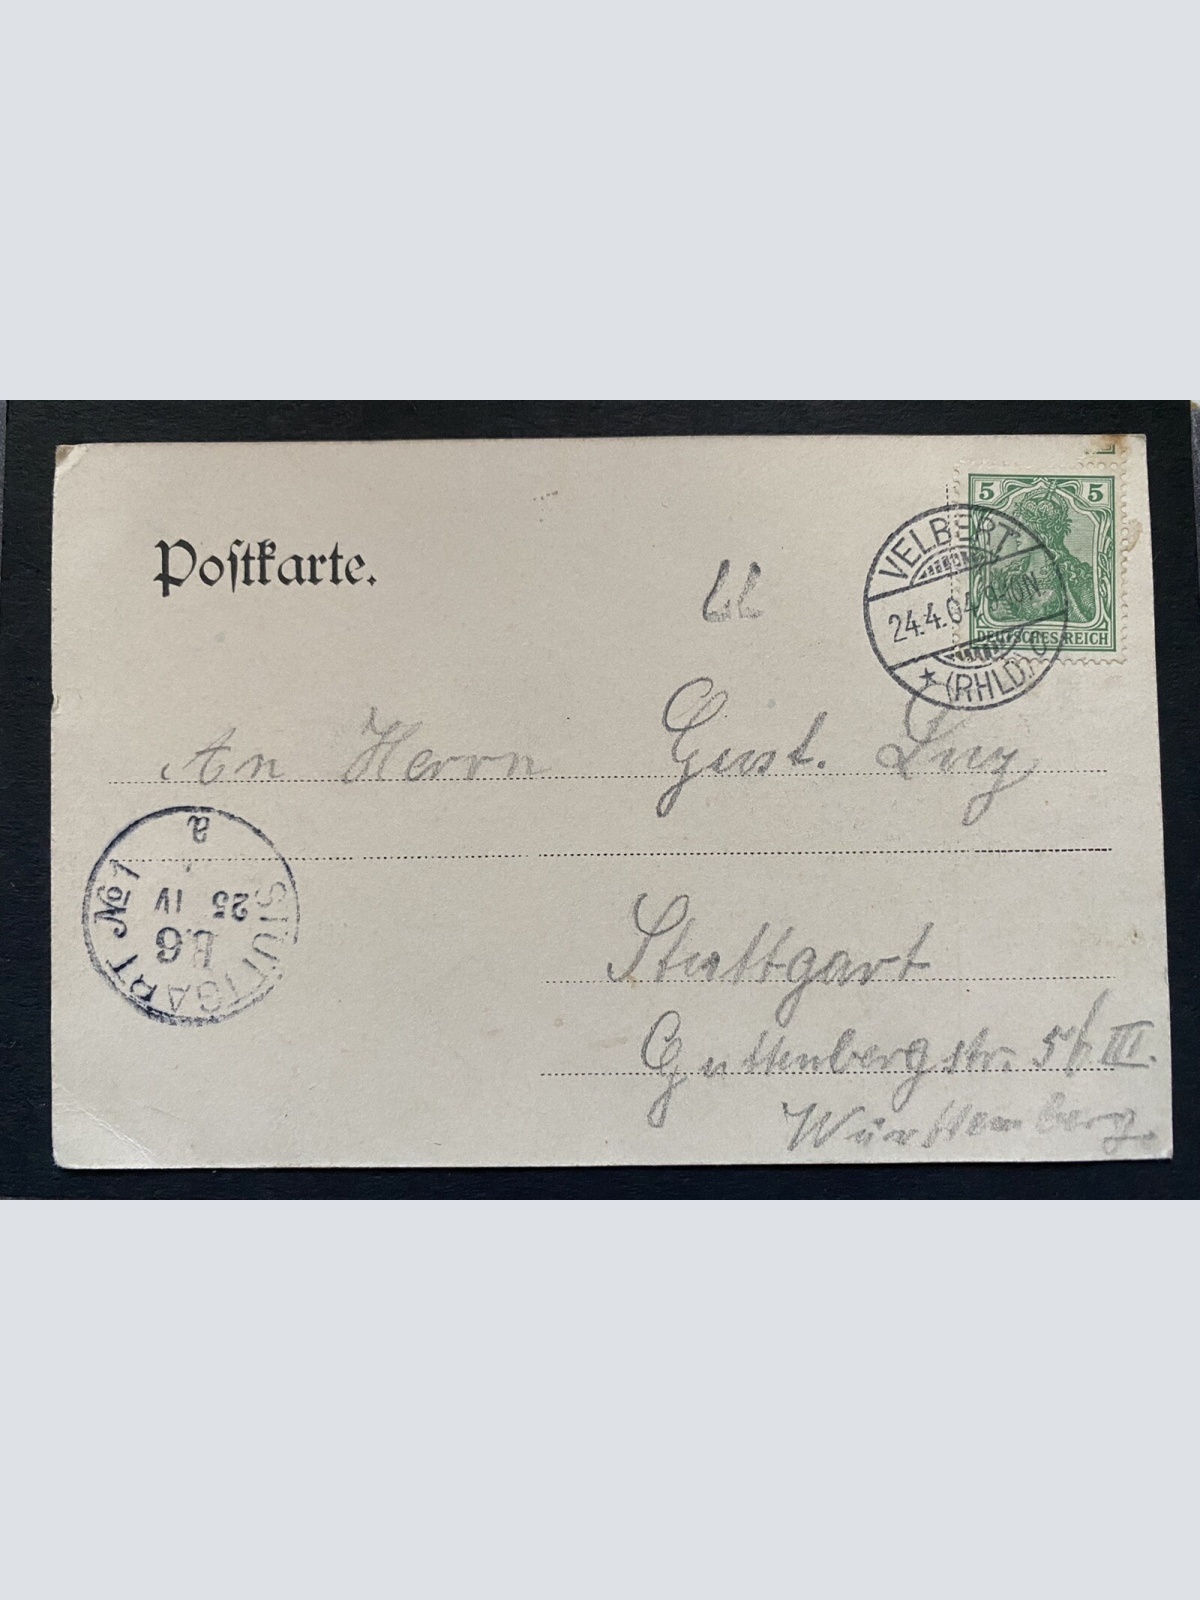 5 5
DEUTSCHES REICH
VELBERT
24.4.04. 9-10N.
* (RHLD.)
Postkarte.
An Herrn Gust. Luz
STUTTGART No 1
a
25 IV
6
Stuttgart
Guttenbergstr. 56 III.
Württemberg.